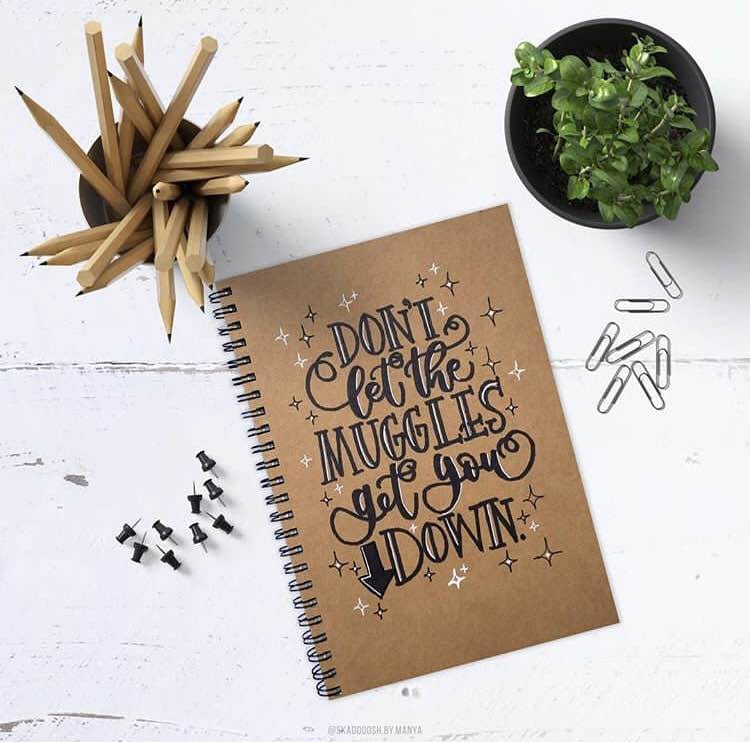 DON'T
let the
MUGGLES
get you
DOWN.
@SKADOOOSH.BY.MANYA